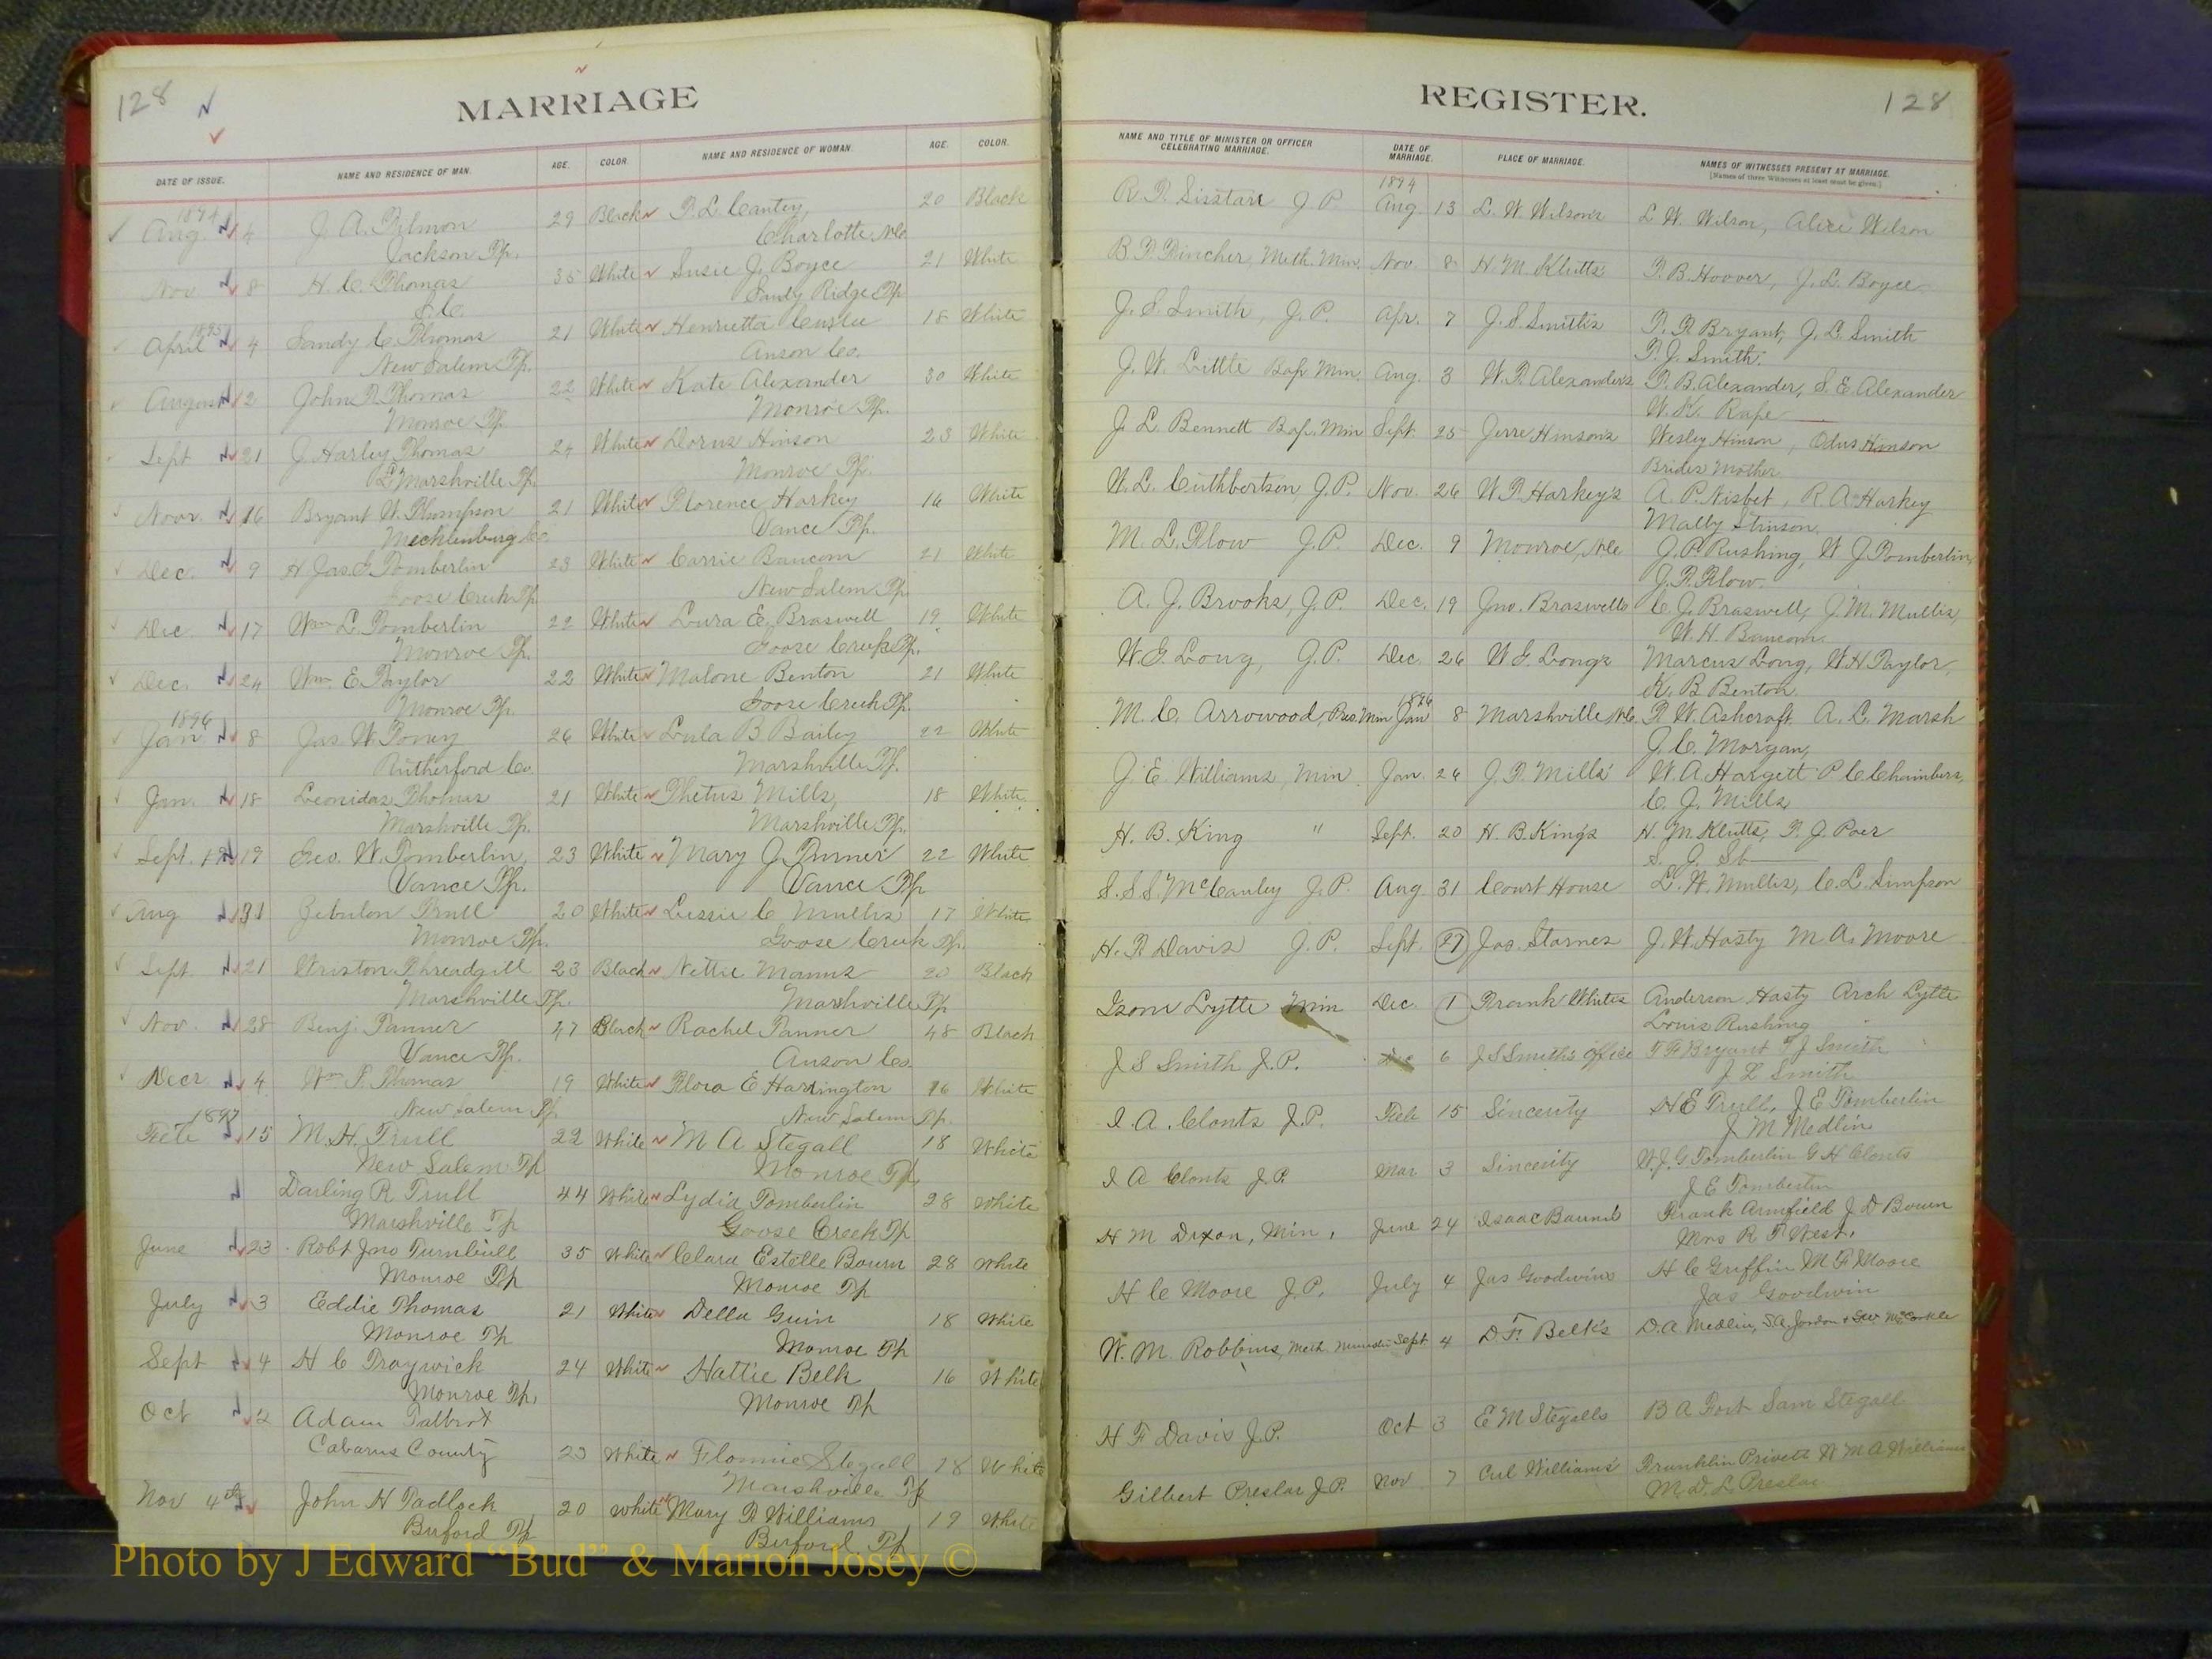 128
MARRIAGE
DATE OF ISSUE. NAME AND RESIDENCE OF MAN. AGE. COLOR. NAME AND RESIDENCE OF WOMAN. AGE. COLOR.
1894
Aug. 4 J. A. Tilmon 29 Black T. L. Cantey, 20 Black
Jackson Tp. Charlotte, N.C.
Nov 8 H. C. Thomas 35 White Susie J. Boyce 21 White
S.C. Sandy Ridge Tp
1895
April 4 Sandy C. Thomas 21 White Henrietta 18 White
New Salem Tp. Anson Co.
August 2 John R. Thomas 22 White Kate Alexander 30 White
Monroe Tp. Monroe Tp.
Sept 21 J. Harley Thomas 24 White Dorus Hinson 23 White
Marshville Tp. Monroe Tp.
Novr. 16 Bryant W. Thompson 21 White Florence Harkey 16 White
Mecklenburg Co. Vance Tp.
Dec. 9 H. Jas. G. Tomberlin 23 White Carrie Baucom 21 White
Goose Creek Tp New Salem Tp.
Dec. 17 Wm L. Tomberlin 22 White Lura E. Braswell 19 White
Monroe Tp. Goose Creek Tp.
Dec. 24 Wm. E. Taylor 22 White Malone Benton 21 White
Monroe Tp. Goose Creek Tp.
1896
Jan 8 Jas. W. Toney 26 White Lula B. Bailey 22 White
Rutherford Co. Marshville Tp.
Jan. 18 Leonidas Thomas 21 White Thetus Mills, 18 White
Marshville Tp. Marshville Tp.
Sept. 19 Geo. W. Tomberlin, 23 White Mary J. Turner 22 White
Vance Tp. Vance Tp
Aug 31 Zebulon Trull 20 White Lessie C Mullis 17 White
Monroe Tp. Goose Creek Tp.
Sept. 21 Wriston Threadgill 23 Black Nettie Manus 20 Black
Marshville Tp. Marshville Tp
Nov. 28 Benj. Tanner 47 Black Rachel Tanner 48 Black
Vance Tp. Anson Co.
Decr 4 Wm T. Thomas 19 White Flora E Harrington 16 White
New Salem Tp New Salem Tp.
1897
Feb 15 M. H. Trull 22 White M A Stegall 18 White
New Salem Tp Monroe Tp
Darling R Trull 44 White Lydia Tomberlin 28 White
Marshville Tp Goose Creek Tp
June 23 Robt Jno Turnbull 35 White Clara Estelle Bourn 28 White
Monroe Tp Monroe Tp
July 3 Eddie Thomas 21 White Della Guin 18 White
Monroe Tp Monroe Tp
Sept 4 H C Traywick 24 White Hattie Belk 16 White
Monroe Tp. Monroe Tp
Oct 2 Adam Talbrot
Cabarrus County 23 White Flonnie Stegall 18 White
Marshville Tp
Nov 4th John H Tadlock 20 white Mary R Williams 19 White
Buford Tp Buford Tp
REGISTER.
128
NAME AND TITLE OF MINISTER OR OFFICER CELEBRATING MARRIAGE. DATE OF MARRIAGE. PLACE OF MARRIAGE. NAMES OF WITNESSES PRESENT AT MARRIAGE.
[Names of three Witnesses at least must be given.]
1894
R. F. Sisstare J P Aug. 13 L. W. Wilson's L. W. Wilson, Alice Wilson
B. F. Fincher, Meth. Min. Nov. 8 H. M. Klutts' T. B. Hoover, J. L. Boyce
J. S. Smith, J. P. Apr. 7 J. S. Smith's T. F. Bryant, J. L. Smith
T. J. Smith.
J. W. Little Bap Min. Aug. 3 W. T. Alexander's T. B. Alexander, S. E. Alexander
W. K. Rape
J. L. Bennett Bap. Min Sept. 25 Jerre Hinson's Wesley Hinson, Odus Hinson
Brides Mother
W. L. Cuthbertson, J.P. Nov. 26 W. F. Harkey's A. P. Nisbet, R. A. Harkey
Mally Stinson
M. L. Flow J.P. Dec. 9 Monroe, N.C. J. P. Rushing, W. J. Tomberlin,
J. R. Flow.
A. J. Brooks, J.P. Dec. 19 Jno. Braswells C. J. Braswell, J. M. Mullis,
W. H. Baucom.
W. G. Long, J.P. Dec. 26 W. G. Long's Marcus Long, W. H. Taylor,
K. B. Benton
1896
M. C. Arrowood, Pres. Min Jan 8 Marshville, N.C. F. W. Ashcraft A. L. Marsh
J. C. Morgan,
J. E. Williams, Min Jan. 26 J. P. Mills' W. A. Hargett P C Chambers,
C. J. Mills
H. B. King " Sept. 20 H. B. King's H. M. Klutts, T. J. Poer
S. S. S. McCauley J. P. Aug 31 Court House L. W. Mullis, C. L. Simpson
H. F. Davis J. P. Sept. 27 Jas. Starnes J. W. Hasty M. A. Moore
Isom Lytle Min Dec. 1 Frank Whites Anderson Hasty Arch Lytle
Louis Rushing
J S Smith J. P. Dec 6 J S Smith's Office T F Bryant T J Smith
J L Smith
I. A. Clontz J.P. Feb 15 Sincerity H E Trull, J E Tomberlin
J M Medlin
I A Clontz J P. Mar 3 Sincerity W. J. G. Tomberlin G H Clonts
J E Tomberlin
H M Dixon, Min. June 24 Isaac Bourn's Frank Armfield J D Bourn
Mrs R F West.
H C Moore J. P. July 4 Jas Goodwins H C Griffin M F Moore
Jas Goodwin
W. M. Robbins, Meth Minister Sept 4 D. F. Belk's D. A Medlin, S. A. Jordon McCorkle
H F Davis J. P. Oct 3 E M Stegalls B A Fort Sam Stegall
Gilbert Preslar J. P. Nov 7 Cul Williams' Franklin Privett W M A Williams
M. D. L. Preslar
Photo by J Edward “Bud” & Marion Josey ©